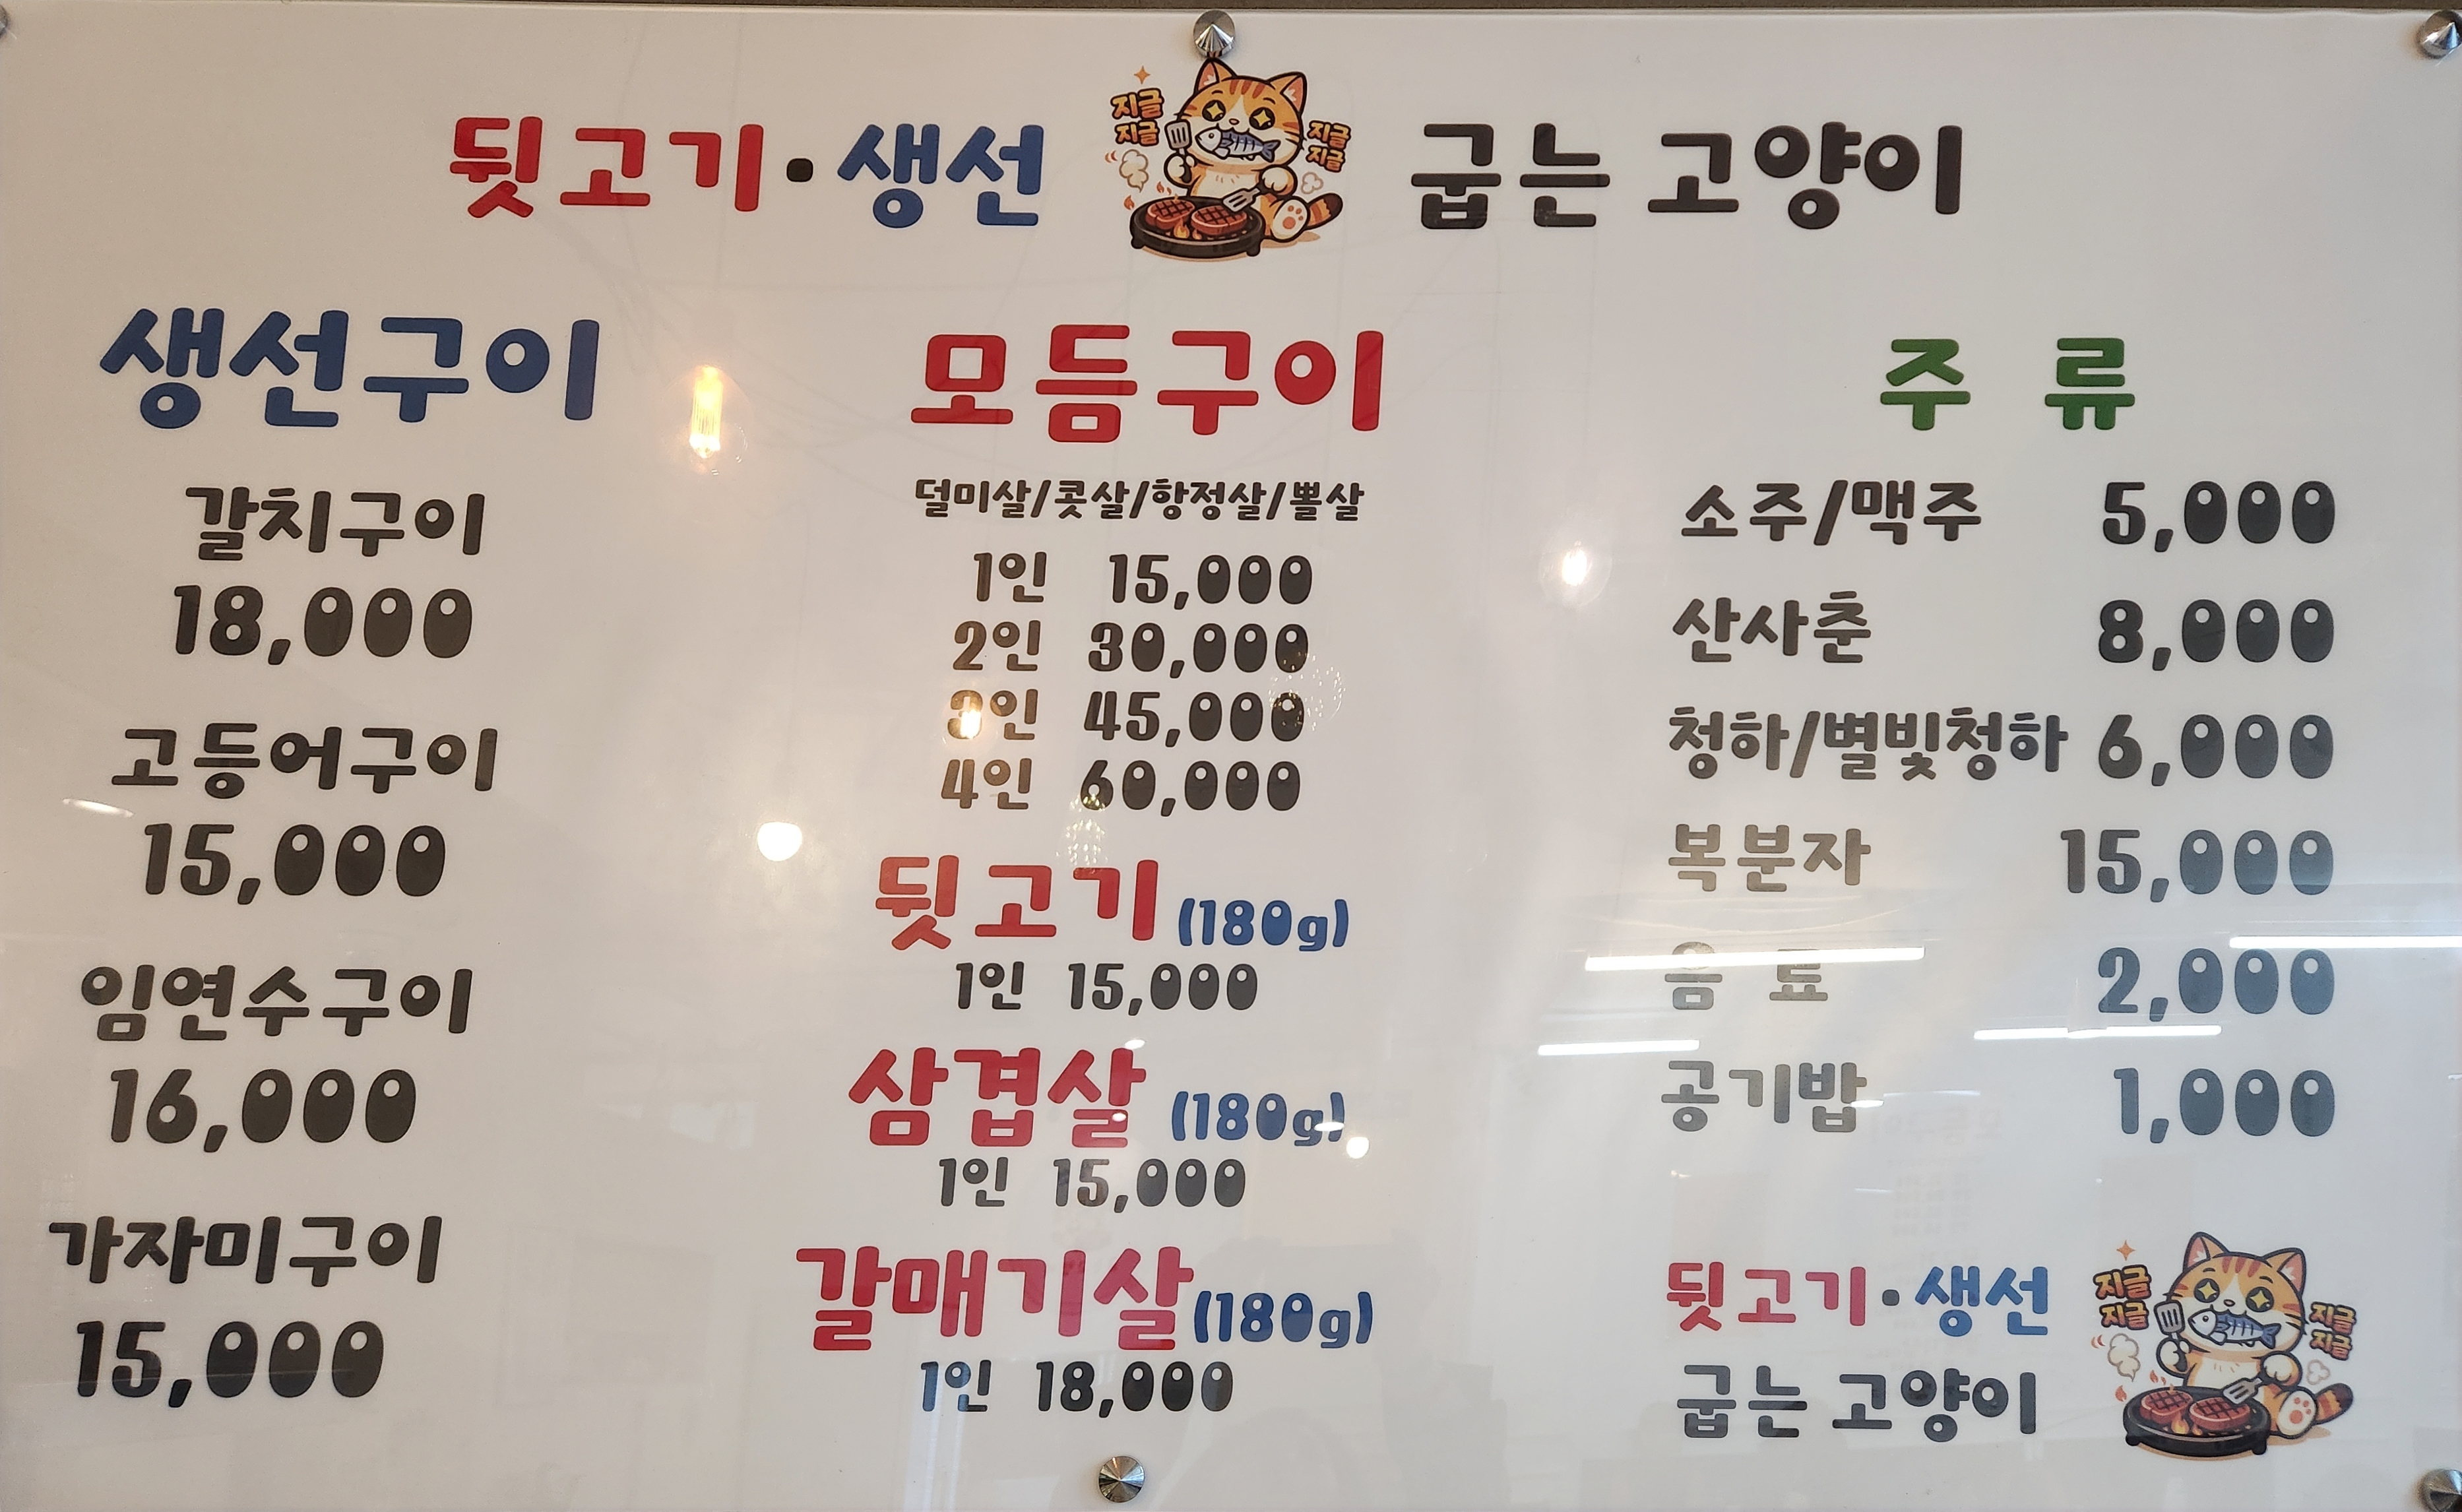 뒷고기·생선 지글 지글 지글 지글 굽는 고양이
생선구이
갈치구이
18,000
고등어구이
15,000
임연수구이
16,000
가자미구이
15,000
모듬구이
덜미살/콧살/항정살/뽈살
1인 15,000
2인 30,000
3인 45,000
4인 60,000
뒷고기 (180g)
1인 15,000
삼겹살 (180g)
1인 15,000
갈매기살(180g)
1인 18,000
주 류
소주/맥주 5,000
산사춘 8,000
청하/별빛청하 6,000
복분자 15,000
음 료 2,000
공기밥 1,000
뒷고기·생선
굽는 고양이
지글 지글
지글 지글